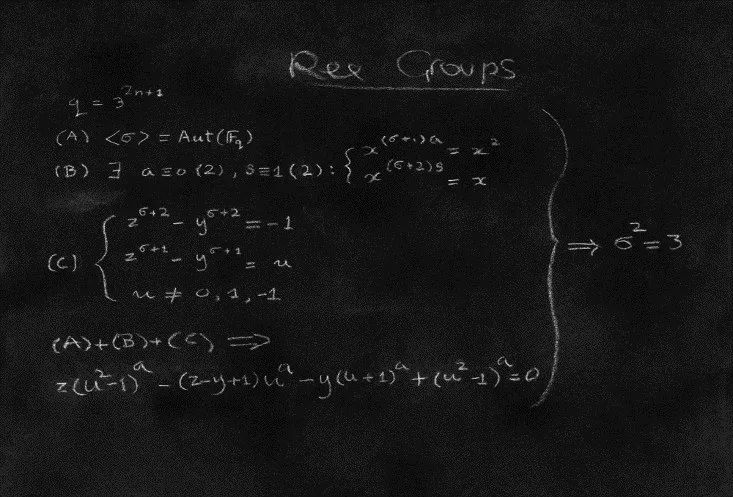 Ree Groups
q = 3^{2n+1}
(A) <σ> = Aut(𝔽_q)
(B) ∃ a≡0(2), s≡1(2): { x^{(σ+1)a} = x^2
x^{(σ+2)s} = x
(C) { z^{σ+2} - y^{σ+2} = -1
z^{σ+1} - y^{σ+1} = u
u ≠ 0, 1, -1
} ⟹ σ^2 = 3
(A)+(B)+(C) ⟹
z(u^2-1)^a - (z-y+1)u^a - y(u+1)^a + (u^2-1)^a = 0